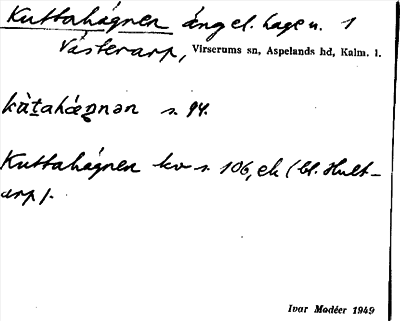 Kuttahágnen äng el. hage u. 1
Västerarp, Virserums sn, Aspelands hd, Kalm. l.
s. 94.
Kuttahágnen kv s. 106, ek (bl. Hult-
arp).
Ivar Modéer 1949